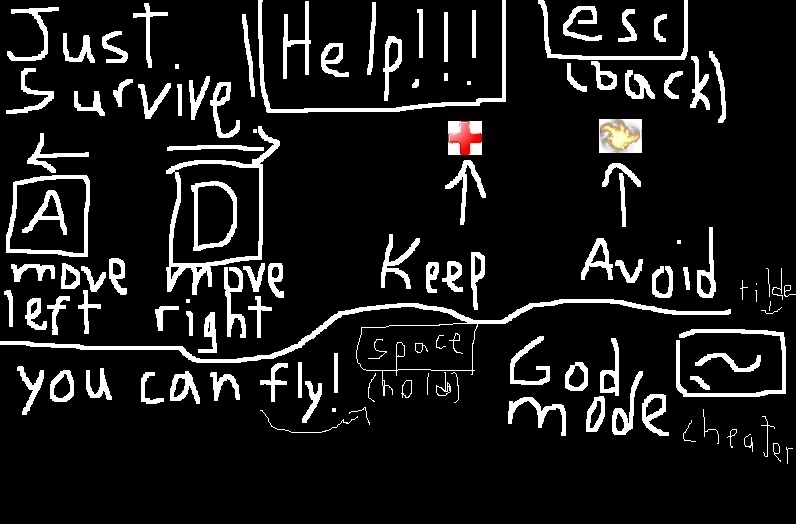 Just
Survive.
Help!!!
esc
(back)
A
move
left
D
move
right
Keep
Avoid
you can fly!
space
(hold)
God
mode
tilde
~
cheater